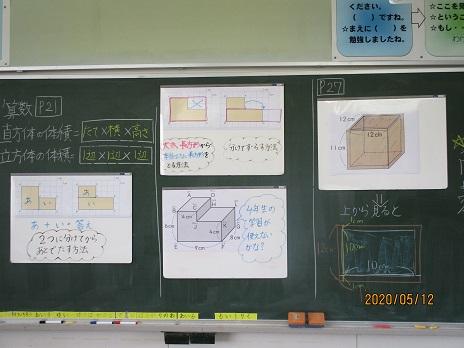 ください。
（　）ですね。
☆まえに（　）を
勉強しましたね。
☆ここを
☆というこ
☆もし・
算数 P21
直方体の体積=たて×横×高さ
立方体の体積=1辺×1辺×1辺
あ
い
あ
い
あ+い=答え
2つに分けてから
あとでたす方法
大きい長方形から
とる方法
分けてずらす方法
4年生の
学習が
使えない
かな？
6cm
4cm
4cm
8cm
9cm
P27
12cm
12cm
11cm
上から見ると
1cm
12cm
10cm
10cm
2020/05/12